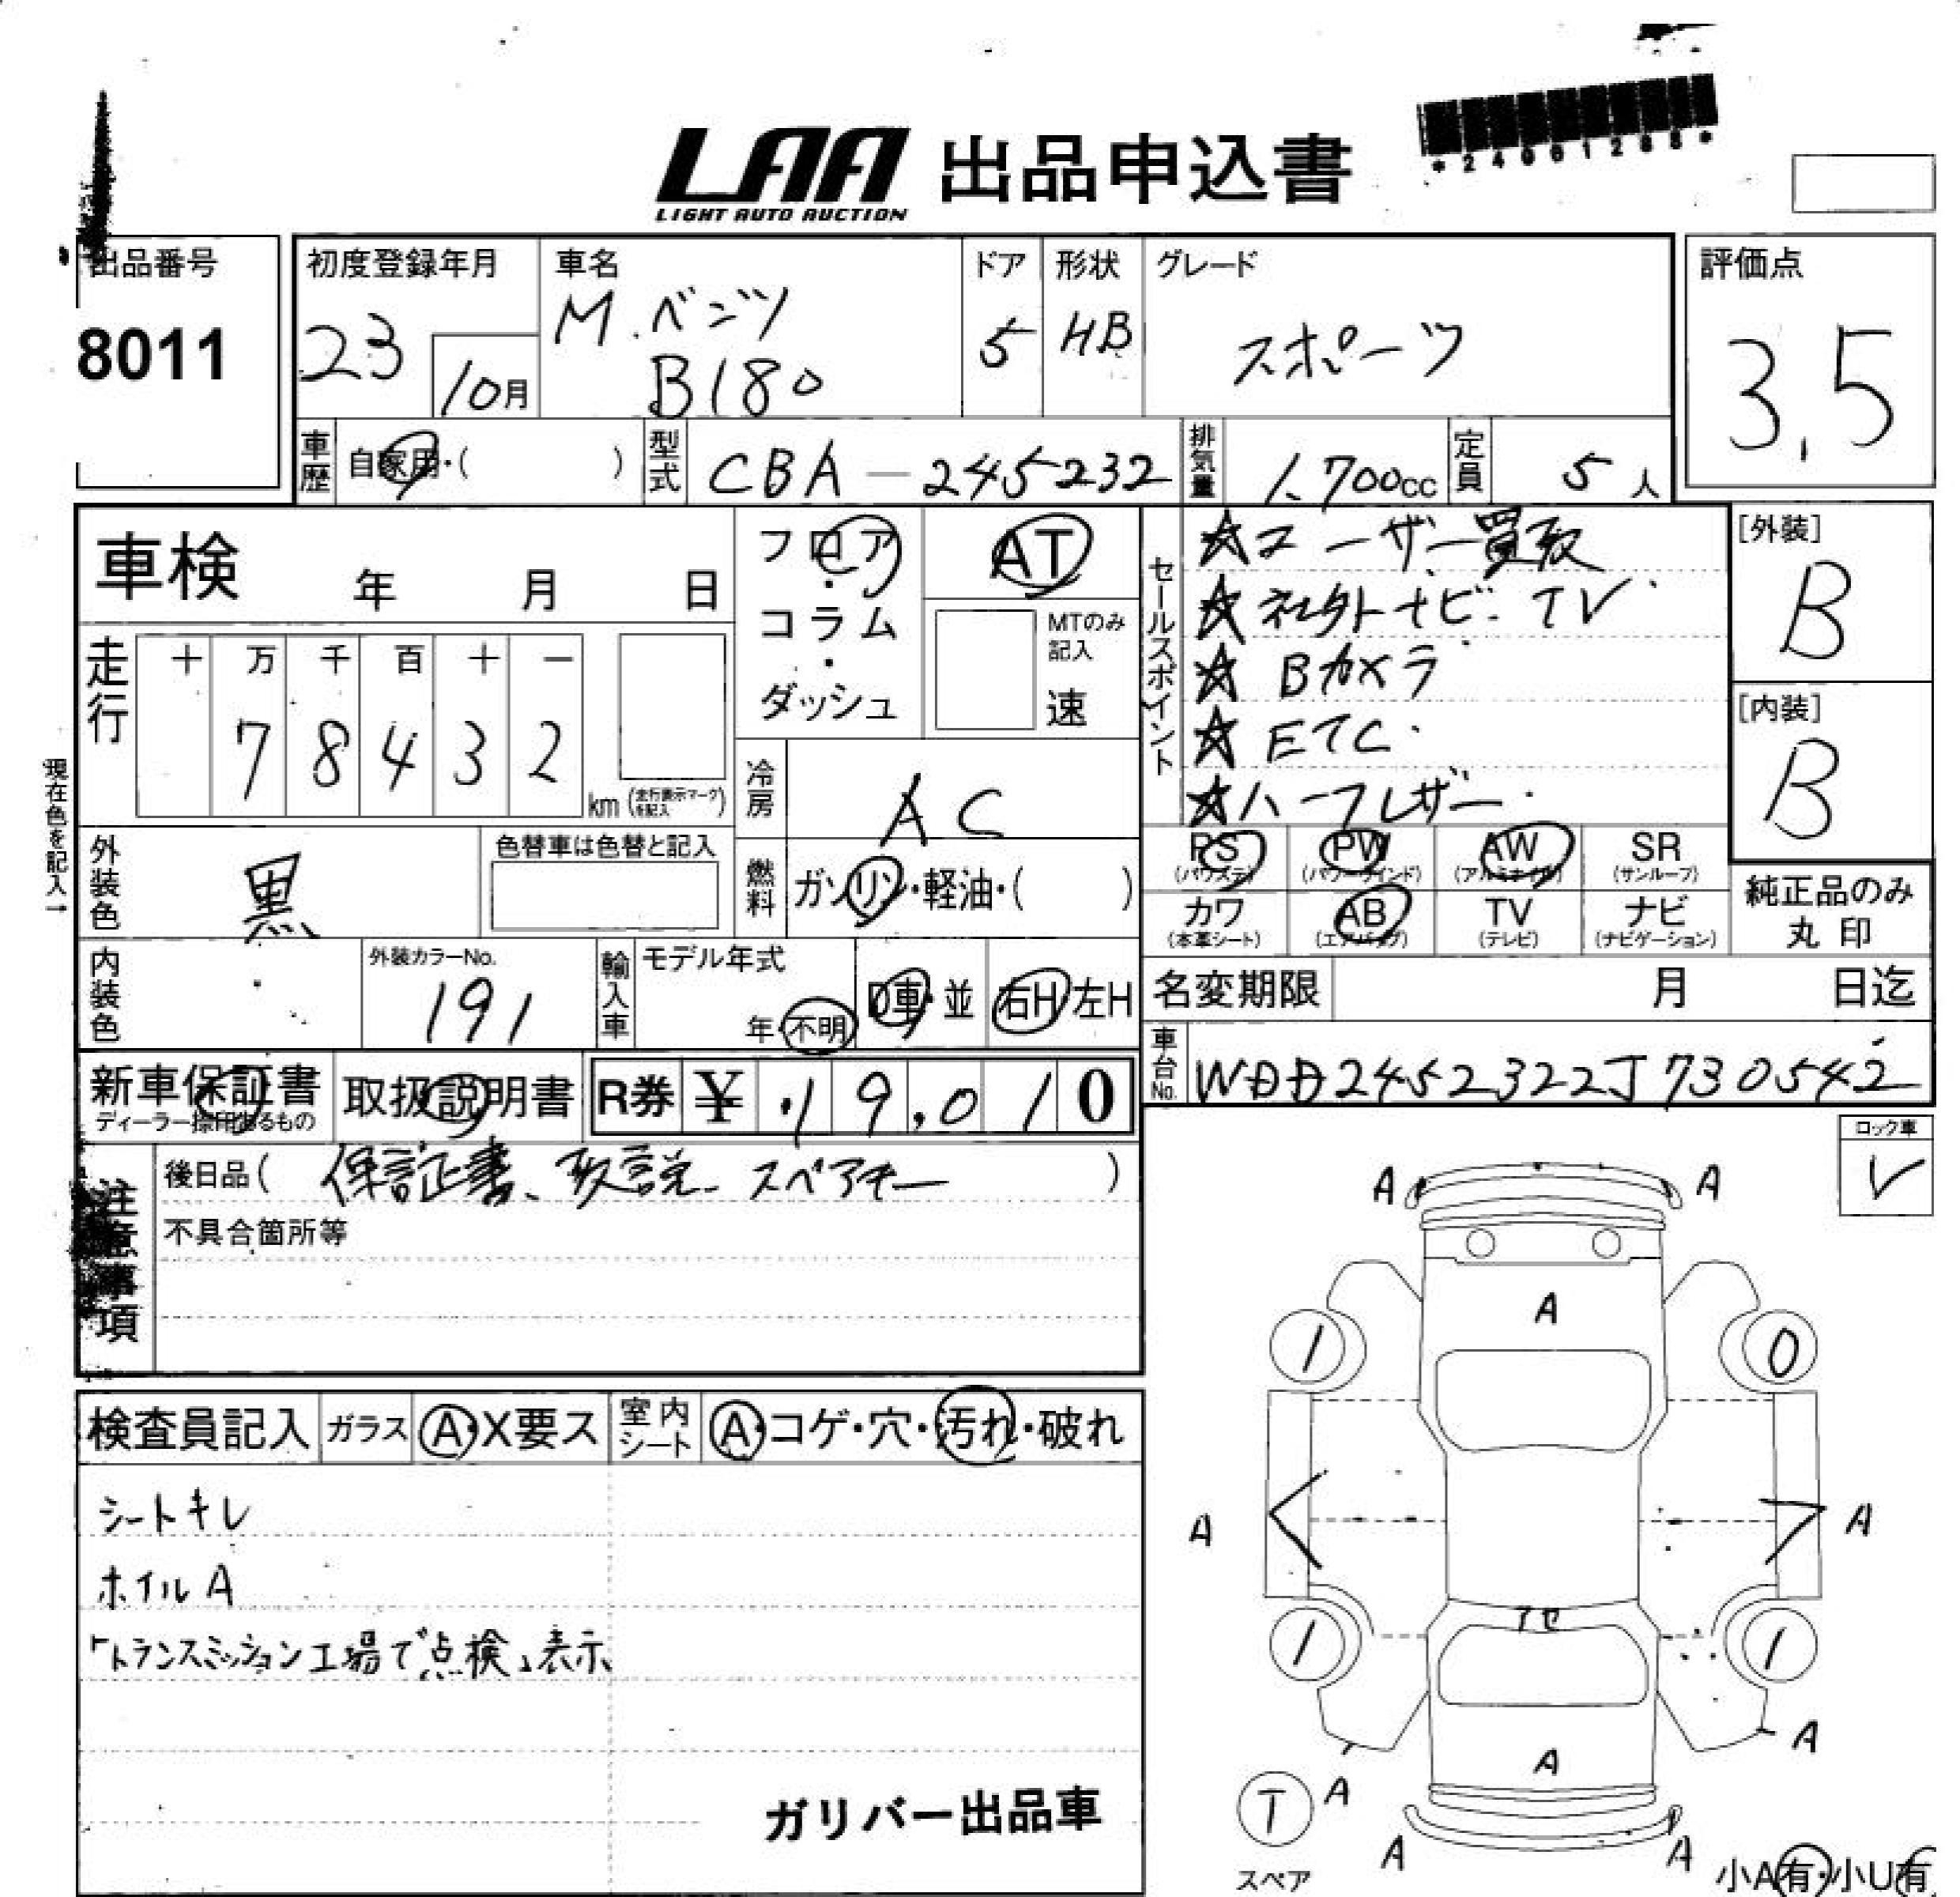 LAA 出品申込書
LIGHT AUTO AUCTION
出品番号
8011
初度登録年月
23
10月
車名
M.ベンツ
B180
ドア
5
形状
HB
グレード
スポーツ
評価点
3.5
車歴
自家用・( )
型式
CBA-245232
排気量
1,700cc
定員
5人
車検 年 月 日
フロア・コラム・ダッシュ
AT
MTのみ記入
速
セールスポイント
☆ユーザー買取
☆社外ナビ・TV
☆Bカメラ
☆ETC
☆ハーフレザー
[外装]
B
[内装]
B
走行
十 万 千 百 十 一
7 8 4 3 2
km (走行表示マークを記入)
現在色を記入→
冷房
AC
外装色
黒
色替車は色替と記入
燃料
ガソリン・軽油・( )
PS (パワステ)
PW (パワーウインド)
AW (アルミホイル)
SR (サンルーフ)
カワ (本革シート)
AB (エアバッグ)
TV (テレビ)
ナビ (ナビゲーション)
純正品のみ
丸印
内装色
外装カラーNo.
191
輸入車
モデル年式
年・不明
D車・並
右H 左H
名変期限 月 日迄
車台No.
WDD2452322J730542
新車保証書
取扱説明書
R券 ¥ 19,010
注意事項
後日品( 保証書、取説、スペアキー )
不具合箇所等
ロック車
レ
検査員記入
ガラス A・X要ス
室内シート A・コゲ・穴・汚れ・破れ
シートキレ
ホイルA
「トランスミッション工場で点検」表示
ガリバー出品車
A A
A
1 0
A A
アセ
1 1
A
A
A
T
スペア
A A
小A有・小U有